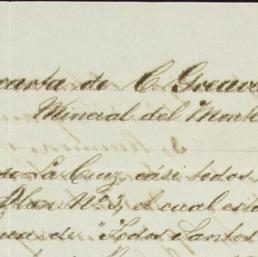 carta de C. Greav
Mineral del Mont
de La Cruz, casi todos
Plan No. 3, el cual est
de "Todos Santos